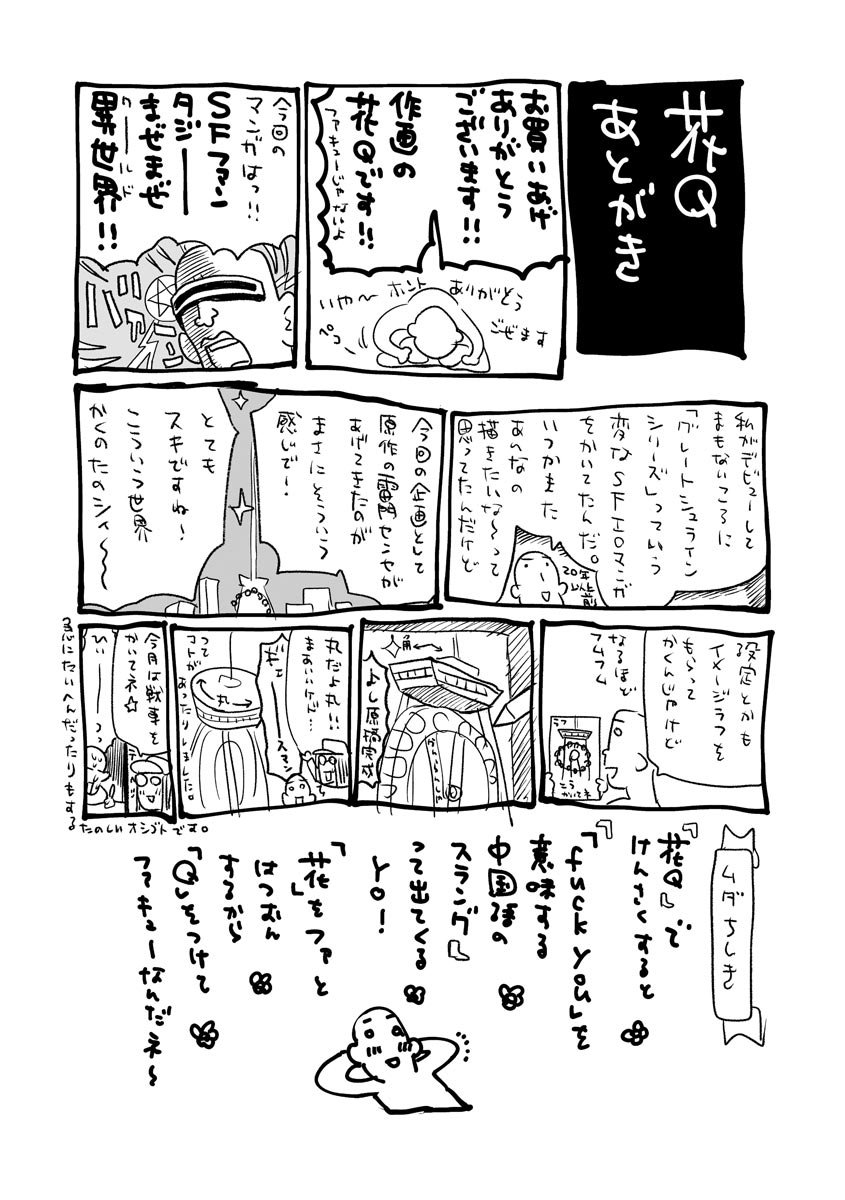 花Q
あとがき
お買いあげ
ありがとう
ございます!!
作画の
花Qです!!
ファキューじゃないよ
いや～ ホント ありがとう
ござます
ペコ
今回の
マンガはっ!!
SFファン
タジー
まぜまぜ
異世界!!
ワールド
私がデビューして
まもないころに
「グレートシュライン
シリーズ」っていう
変なSFエロマンガ
をかいてたんだ。
いつかまた
あんなの
描きたいな～って
思ってたんだけど
20年
以上前
今回の企画として
原作の雷門センセが
あげてきたのが
まさにそういう
感じで！
とても
スキですね！
こういう世界
かくのたのシィ～～
設定とかも
イメージラフを
もらって
かくんじゃけど
なるほど
フムフム
ラフ
こう
かいてネ
角
よし原橋完成
丸だよ丸!!
まあいいけど…
ギエーー
スマン
丸
って
コトが
あったりしました。
今月は戦車を
かいてネ☆
ひぃーーっっ
急にたいへんだったりもする
たのしいオシゴトです。
ムダちしき
『花Q』で
けんさくすると
『「fuck you」を
意味する
中国語の
スラング』
って出てくる
yo!
「花」をファと
はつおん
するから
「Q」をつけて
ファキューなんだネ～